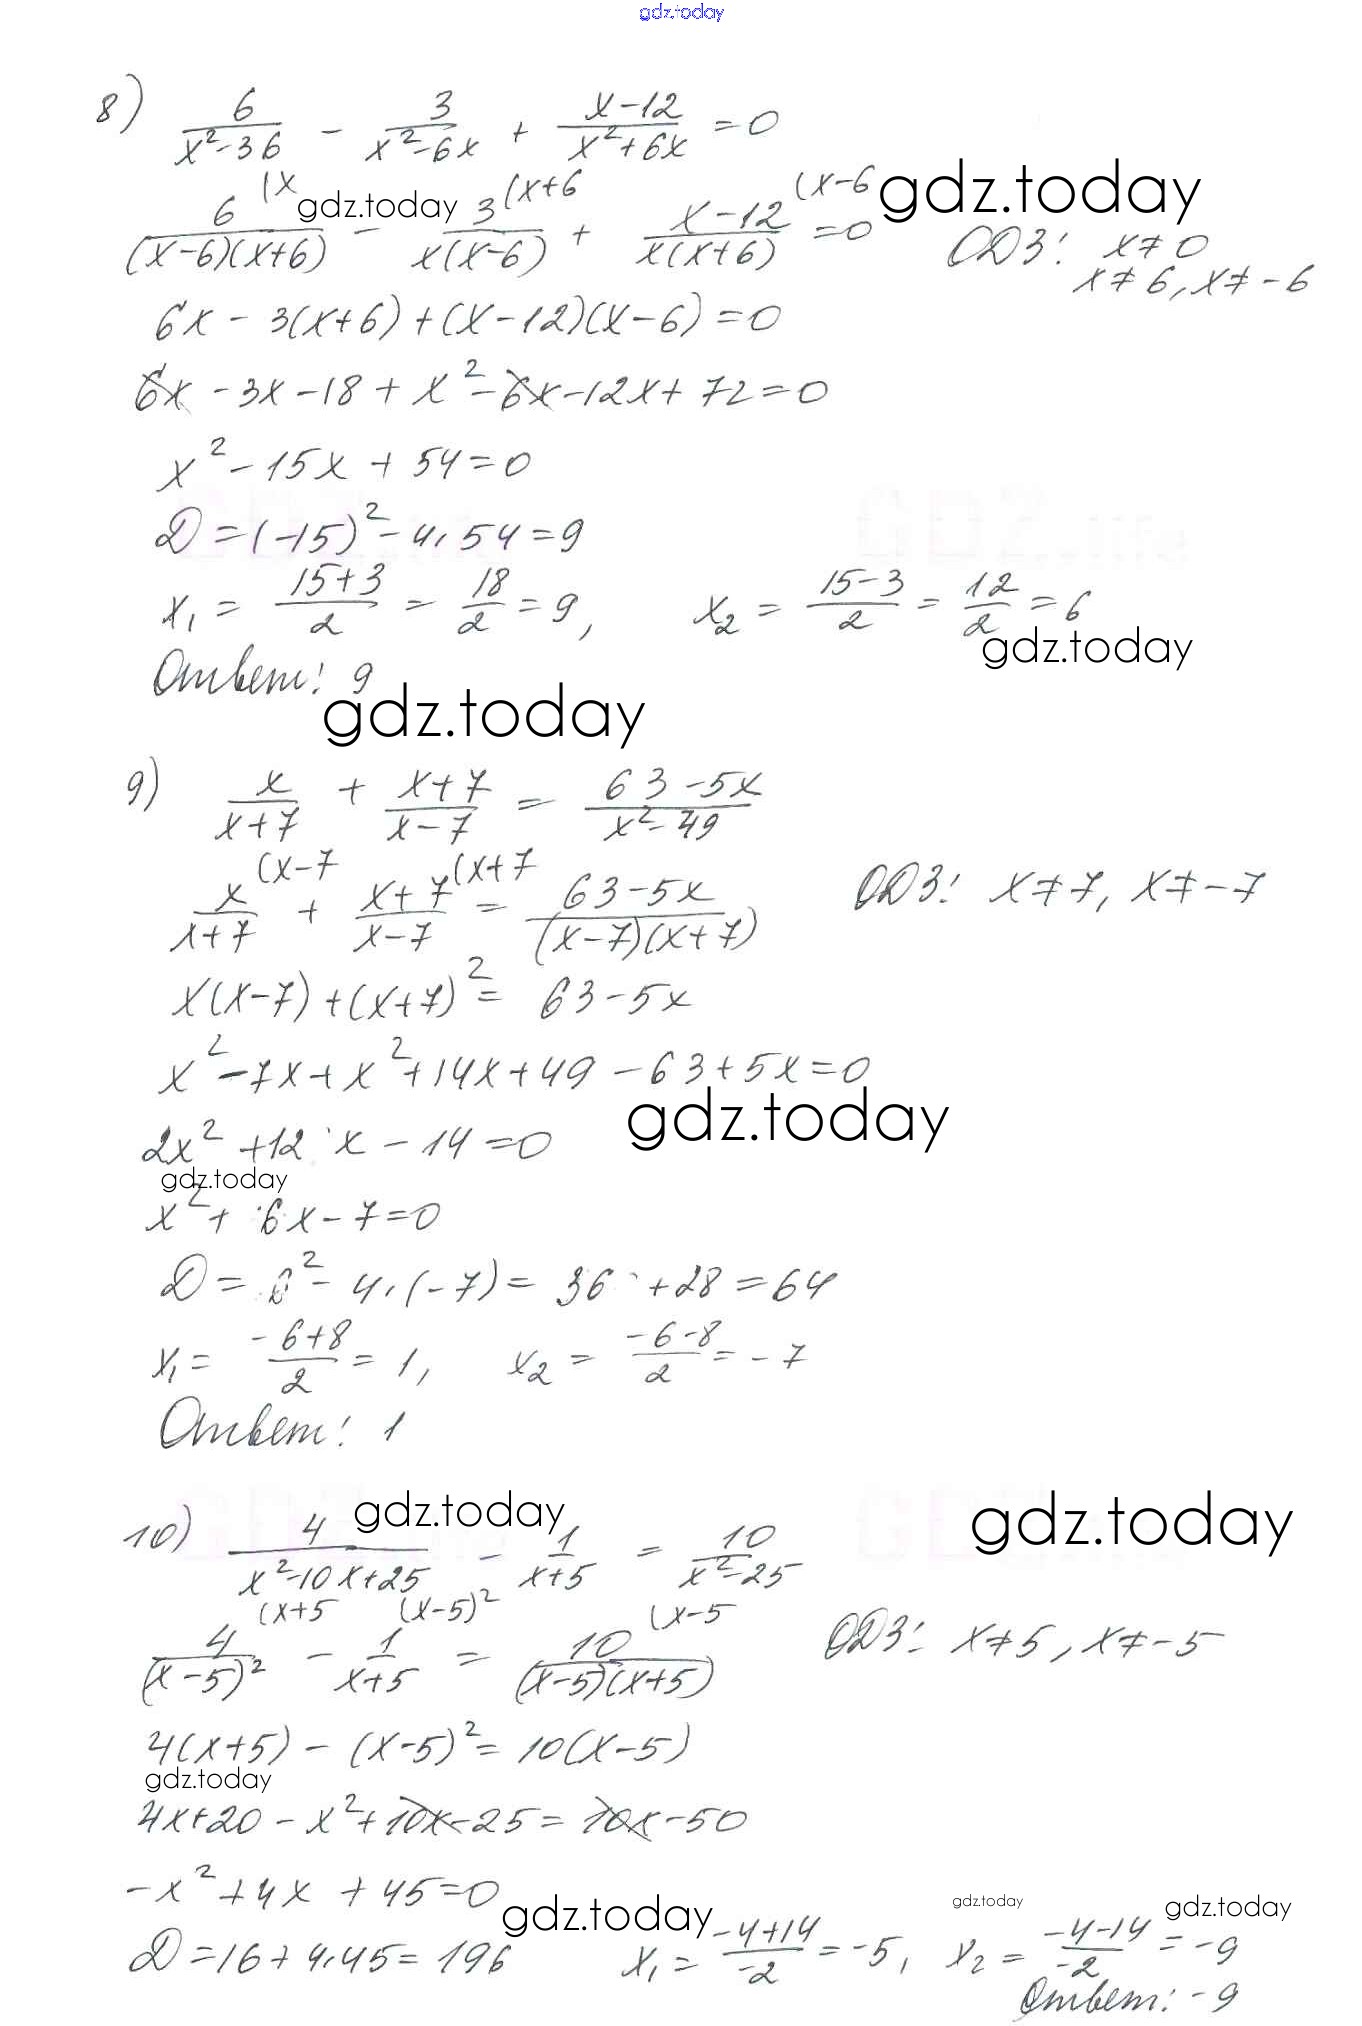 gdz.today
8) 6/(x²-36) - 3/(x²-6x) + (x-12)/(x²+6x) = 0
gdz.today
6/((x-6)(x+6)) (x - 3/(x(x-6)) (x+6 + (x-12)/(x(x+6)) (x-6 = 0 ОДЗ: x≠0
gdz.today
x≠6, x≠-6
6x - 3(x+6) + (x-12)(x-6) = 0
6x - 3x - 18 + x² - 6x - 12x + 72 = 0
x² - 15x + 54 = 0
D = (-15)² - 4·54 = 9
x₁ = (15+3)/2 = 18/2 = 9, x₂ = (15-3)/2 = 12/2 = 6
gdz.today
Ответ: 9
gdz.today
9) x/(x+7) + (x+7)/(x-7) = (63-5x)/(x²-49)
x/(x+7) (x-7 + (x+7)/(x-7) (x+7 = (63-5x)/((x-7)(x+7)) ОДЗ: x≠7, x≠-7
x(x-7) + (x+7)² = 63-5x
x² - 7x + x² + 14x + 49 - 63 + 5x = 0
gdz.today
2x² + 12x - 14 = 0
gdz.today
x² + 6x - 7 = 0
D = 6² - 4·(-7) = 36 + 28 = 64
x₁ = (-6+8)/2 = 1, x₂ = (-6-8)/2 = -7
Ответ: 1
gdz.today
gdz.today
10) 4/(x²-10x+25) - 1/(x+5) = 10/(x²-25)
4/(x-5)² (x+5 - 1/(x+5) (x-5)² = 10/((x-5)(x+5)) (x-5 ОДЗ: x≠5, x≠-5
4(x+5) - (x-5)² = 10(x-5)
gdz.today
4x+20 - x² + 10x - 25 = 10x - 50
-x² + 4x + 45 = 0
gdz.today
gdz.today
gdz.today
D = 16 + 4·45 = 196 x₁ = (-4+14)/-2 = -5, x₂ = (-4-14)/-2 = -9
Ответ: -9